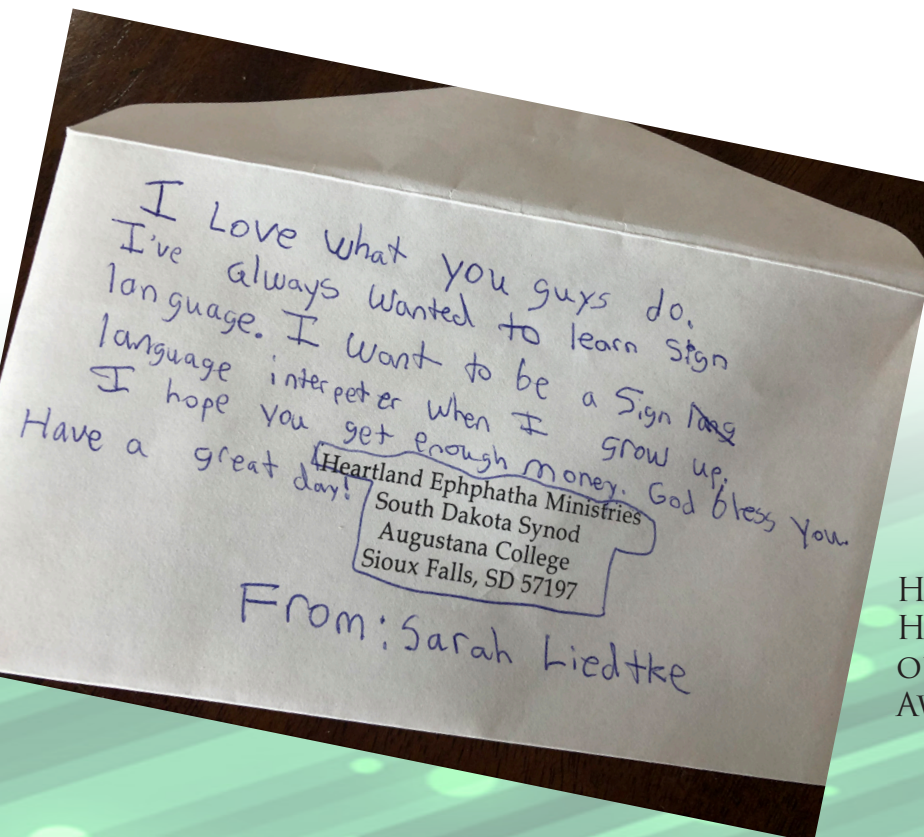 I Love what you guys do.
I've always wanted to learn sign
language. I want to be a Sign lang
language interpeter when I grow up.
I hope you get enough money. God bless you.
Have a great day!
Heartland Ephphatha Ministries
South Dakota Synod
Augustana College
Sioux Falls, SD 57197
From: Sarah Liedtke
H
H
O